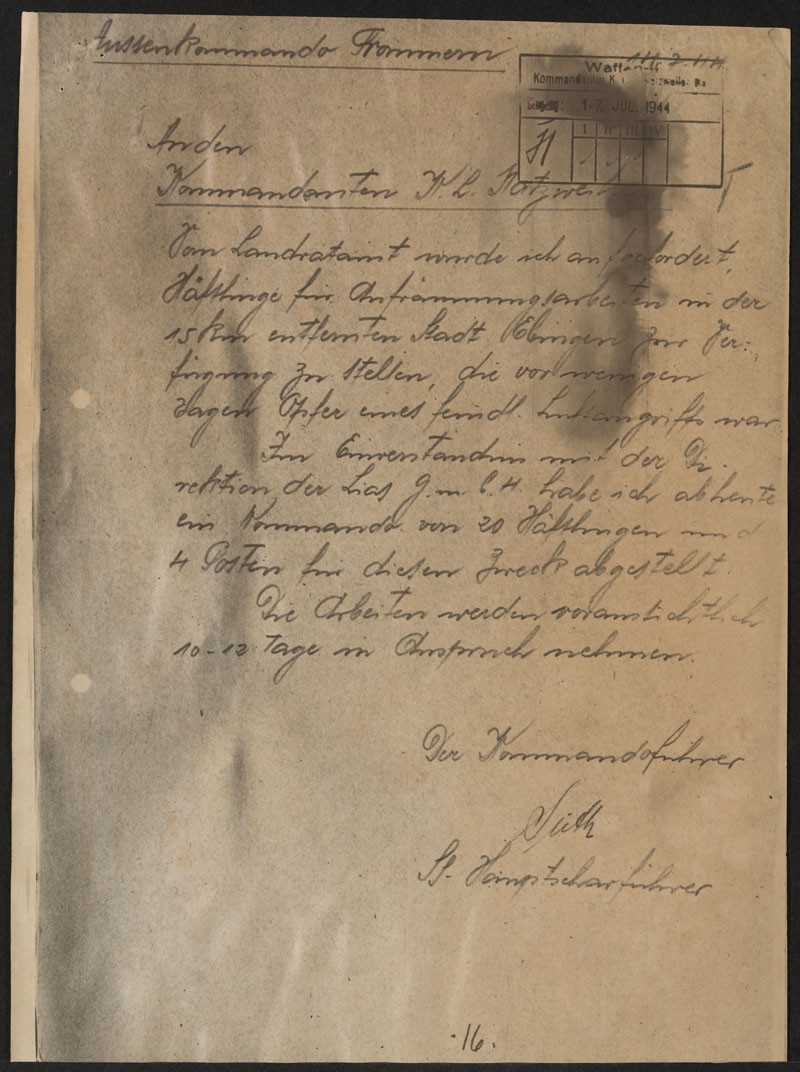 Aussenkommando Frommern
14.7.44
Waffen-
Kommandantur K.
Eingang: 17. JUL. 1944
I II III IV
An den
Kommandanten K.L. Natzweiler
Vom Landratamt wurde ich aufgefordert,
Häftlinge für Aufräumungsarbeiten in der
15 km entfernten Stadt Ebingen zur Ver=
fügung zu stellen, die vor wenigen
Tagen Opfer eines feindl. Luftangriffs war.
Im Einverständnis mit der Di-
rektion der Lias G.m.b.H. habe ich ab heute
ein Kommando von 20 Häftlingen und
4 Posten für diesen Zweck abgestellt.
Die Arbeiten werden voraussichtlich
10-12 Tage in Anspruch nehmen.
Der Kommandoführer
SS-Hauptscharführer
16.